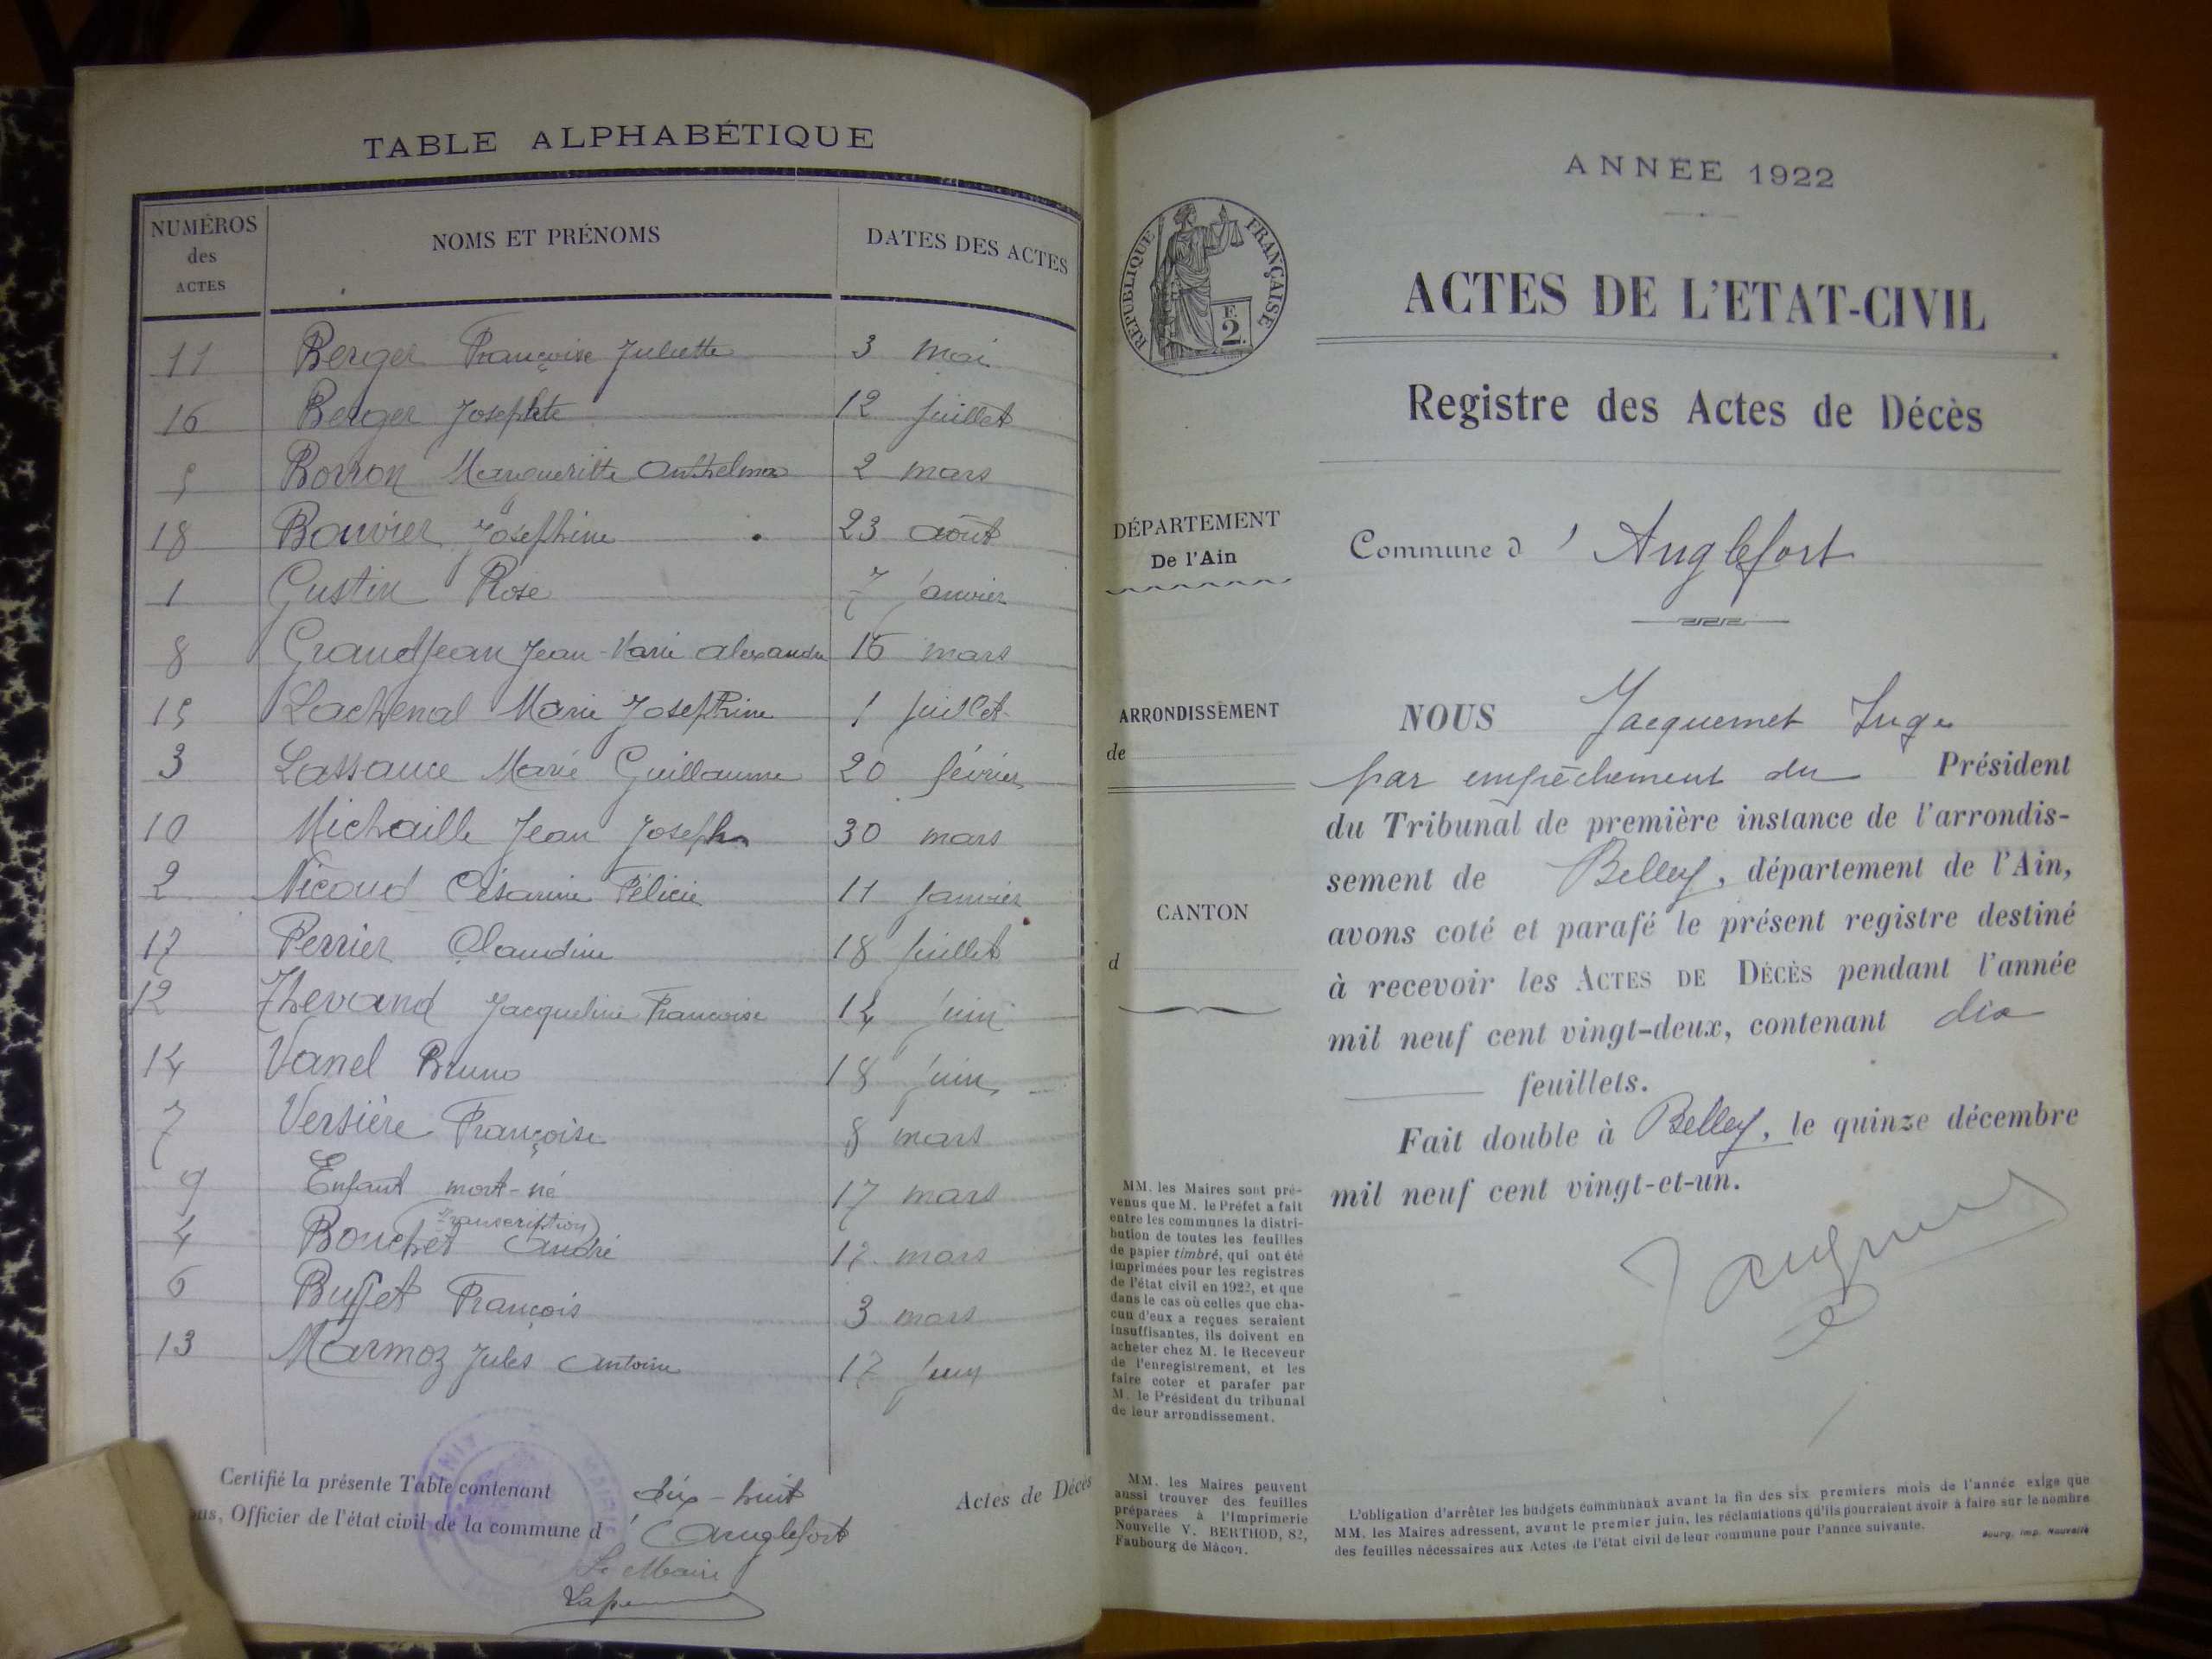 TABLE ALPHABÉTIQUE
NUMÉROS des ACTES
NOMS ET PRÉNOMS
DATES DES ACTES
11 Berger Françoise Juliette 3 mai
16 Berger Josephte 12 juillet
5 Borron Margueritte Anthelma 2 mars
18 Bouvier Joséphine 23 août
1 Gustin Rose 7 janvier
8 Grandjean Jean-Marie alexandre 16 mars
15 Lachenal Marie Josephine 1 juillet
3 Lassauce Marie Guillaume 20 février
10 Michaille Jean Joseph 30 mars
2 Nicoud Césarine Félicie 11 janvier
17 Perrier Claudine 18 juillet
12 Thevand Jacqueline Francoise 14 juin
14 Vanel Bruno 18 juin
7 Versière Françoise 8 mars
9 Enfant mort-né 17 mars
(transcription)
4 Bouchet André 12 mars
6 Buffet François 3 mars
13 Marmoz Jules Antoine 17 juin
Certifié la présente Table contenant dix-huit Actes de Décès
Officier de l'état civil de la commune d'Anglefort
Le Maire
ANNÉE 1922
RÉPUBLIQUE FRANÇAISE
F.
2.
ACTES DE L'ETAT-CIVIL
Registre des Actes de Décès
DÉPARTEMENT
De l'Ain
Commune d'Anglefort
ARRONDISSEMENT
de
CANTON
d
NOUS Jacquemet Juge
par empêchement du Président
du Tribunal de première instance de l'arrondis-
sement de Belley, département de l'Ain,
avons coté et parafé le présent registre destiné
à recevoir les ACTES DE DÉCÈS pendant l'année
mil neuf cent vingt-deux, contenant dix
feuillets.
Fait double à Belley, le quinze décembre
mil neuf cent vingt-et-un.
MM. les Maires sont pré-
venus que M. le Préfet a fait
entre les communes la distri-
bution de toutes les feuilles
de papier timbré, qui ont été
imprimées pour les registres
de l'état civil en 1922, et que
dans le cas où celles que cha-
cun d'eux a reçues seraient
insuffisantes, ils doivent en
acheter chez M. le Receveur
de l'enregistrement, et les
faire coter et parafer par
M. le Président du tribunal
de leur arrondissement.
MM. les Maires peuvent
aussi trouver des feuilles
préparées à l'Imprimerie
Nouvelle V. BERTHOD, 82,
Faubourg de Mâcon.
L'obligation d'arrêter les budgets communaux avant la fin des six premiers mois de l'année exige que
MM. les Maires adressent, avant le premier juin, les réclamations qu'ils pourraient avoir à faire sur le nombre
des feuilles nécessaires aux Actes de l'état civil de leur commune pour l'année suivante.
Bourg, Imp. Nouvelle